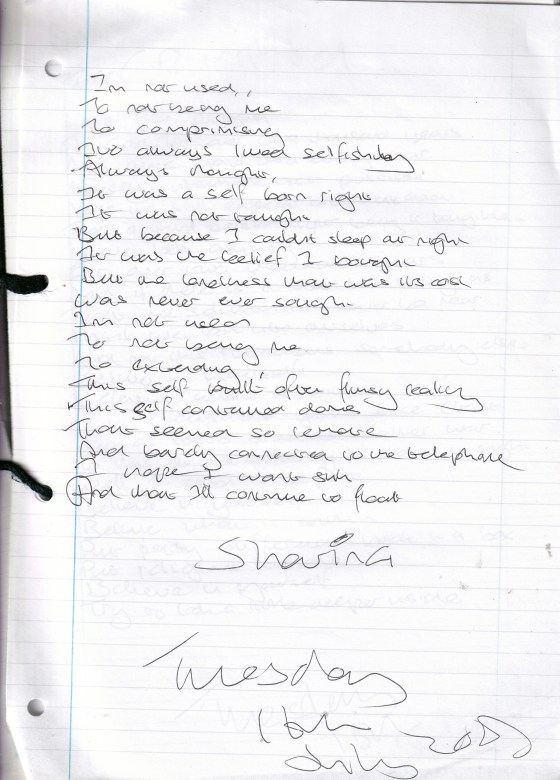 I'm not used,
To not being me
To comprimising
Ive always lived selfishley
Always thought,
It was a self born right
It was not taught
But because I couldnt sleep at night
It was the belief I bought
But the loneliness that was its cost
Was never ever sought
I'm not used
To not being me
To extending
This self built often flimsy reality
This self contained dome
That seemed so remote
And barely connected to the telephone
I hope I wont sink
And that I'll continue to float
Sharing
Tuesday
July